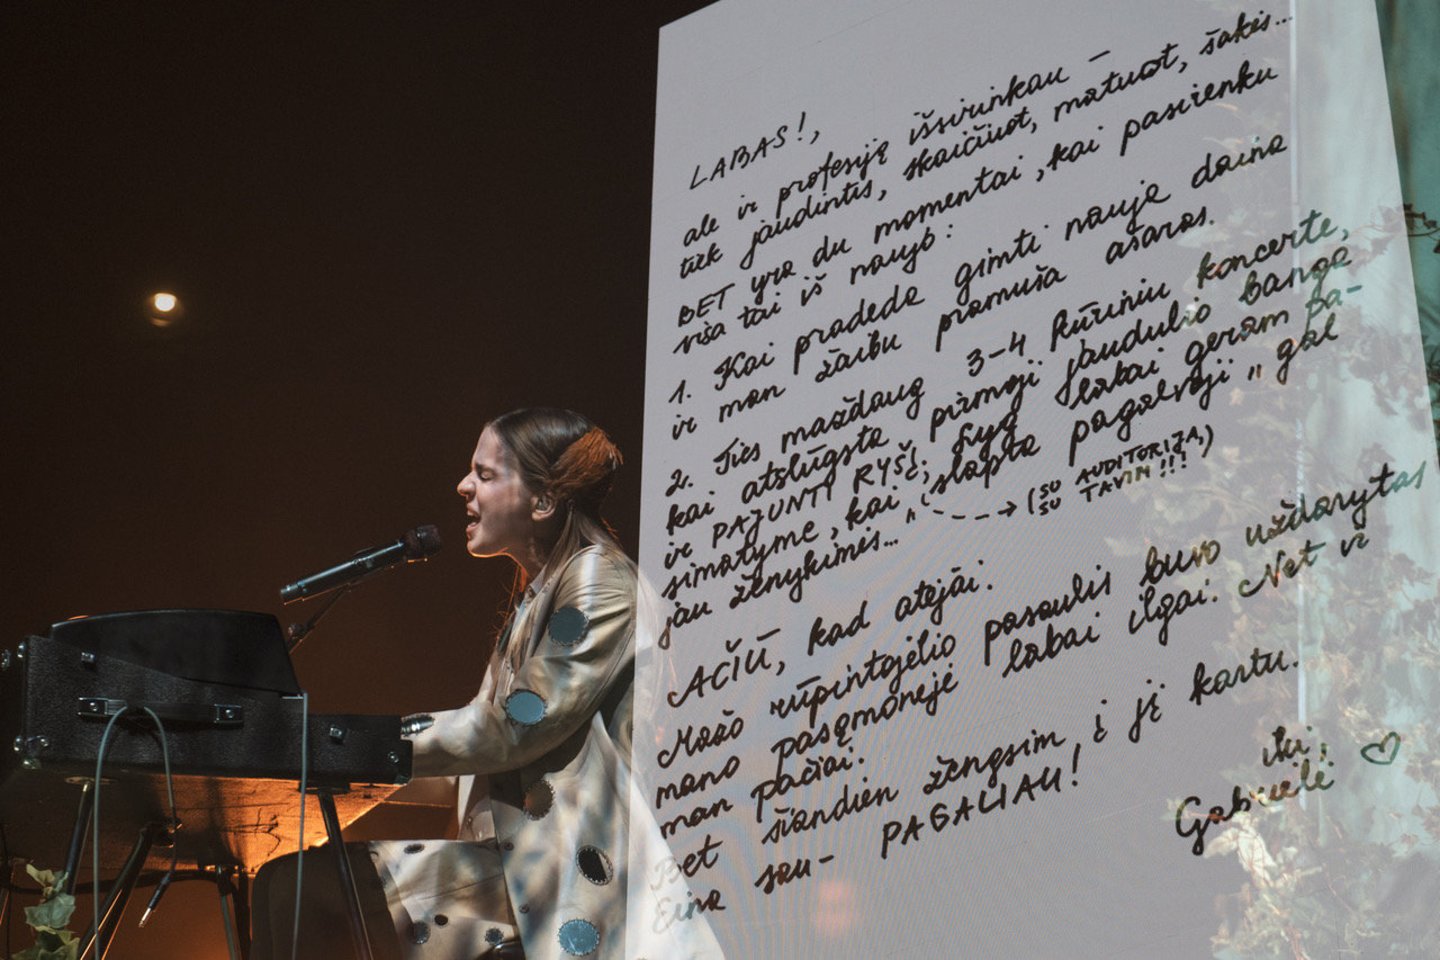 LABAS!,
ale ir profesiją išsirinkau –
tiek jaudintis, skaičiuot, matuot, šakės...
BET yra du momentai, kai pasirenku
viša tai iš naujo:
1. Kai pradeda gimti nauja daina
ir man žaibu pramuša ašaras.
2. Ties maždaug 3-4 kūriniu koncerte,
kai atslūgsta pirmoji jaudulio banga
ir PAJUNTI RYŠĮ, lyg labai geram pa-
simatyme, kai slapta pagalvoji „gal
jau ženykimės..."
(SU AUDITORIJA,
SU TAVIM!!!)
AČIŪ, kad atėjai.
Mažo rūpintojėlio pasaulis buvo uždarytas
mano pasąmonėje labai ilgai. Net ir
man pačiai.
Bet šiandien žengsim į jį kartu.
Eina sau- PAGALIAU!
iki,
Gabrielė ♡